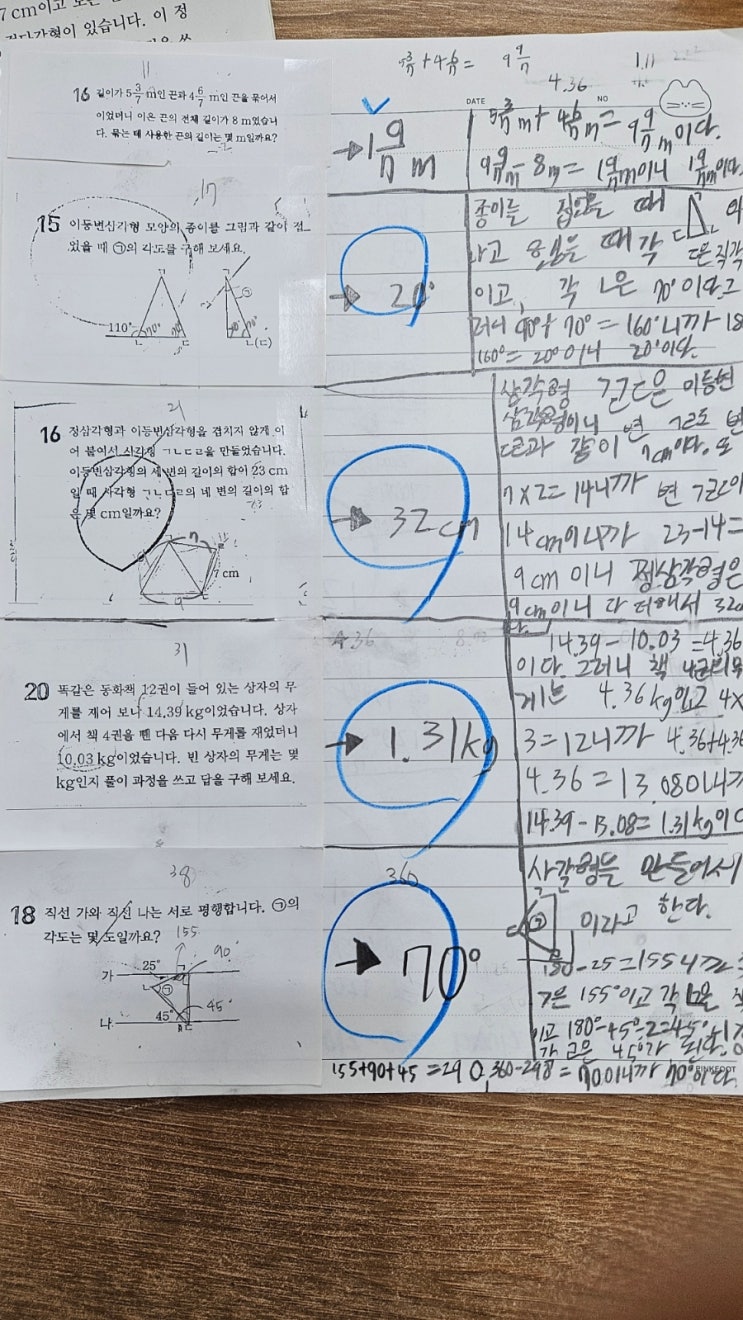 7cm이고
각다각형이 있습니다. 이 정
4.36
1.11
DATE NO
16 길이가 5 3/7 m인 끈과 4 6/7 m인 끈을 묶어서
이었더니 이은 끈의 전체 길이가 8 m였습니
다. 묶는 데 사용한 끈의 길이는 몇 m일까요?
→ 1 9/7 m
5 3/7 m + 4 6/7 m = 9 9/7 m이다.
9 9/7 m - 8m = 1 9/7 m이니 1 9/7 m이다.
17
15 이등변삼각형 모양의 종이를 그림과 같이 접
었을 때 ㉠의 각도를 구해 보세요.
110° 70°
→ 20°
종이를 접었을 때
라고 했을 때 각 ㄷ은 직각
이고, 각 ㄴ은 70°이다. 그
러니 90°+70°=160°니까 18
160°=20°이니 20°이다.
21
16 정삼각형과 이등변삼각형을 겹치지 않게 이
어 붙여서 사각형 ㄱㄴㄷㄹ을 만들었습니다.
이등변삼각형의 세 변의 길이의 합이 23 cm
일 때 사각형 ㄱㄴㄷㄹ의 네 변의 길이의 합
은 몇 cm일까요?
7
7 cm
9
→ 32cm
삼각형 ㄱㄹㄷ은 이등변
삼각형이니 변 ㄱㄹ도 변
ㄹㄷ과 같이 7cm이다. 또
7×2=14니까 변 ㄱㄷ이
14cm이니까 23-14=
9cm이니 정삼각형은
9cm이니 다 더해서 32c
31
20 똑같은 동화책 12권이 들어 있는 상자의 무
게를 재어 보니 14.39 kg이었습니다. 상자
에서 책 4권을 뺀 다음 다시 무게를 재었더니
10.03 kg이었습니다. 빈 상자의 무게는 몇
kg인지 풀이 과정을 쓰고 답을 구해 보세요.
4.36
→ 1.31kg
14.39-10.03=4.36
이다. 그러니 책 4권의 무
게는 4.36kg이고 4×
3=12니까 4.36+4.36
4.36=13.08이니까
14.39-13.08=1.31kg이
38
18 직선 가와 직선 나는 서로 평행합니다. ㉠의
각도는 몇 도일까요?
155
90°
가 25°
㉠
나 45° 45°
360
→ 70°
사각형을 만들어서
㉠ 이라고 한다.
180-25=155니까
ㄱ은 155°이고 각
이고 180°-45°÷2=45°
가 ㄹ은 45°가 된다.
155+90+45=290, 360-298=70이니까 70°이다.
PINKFOOT